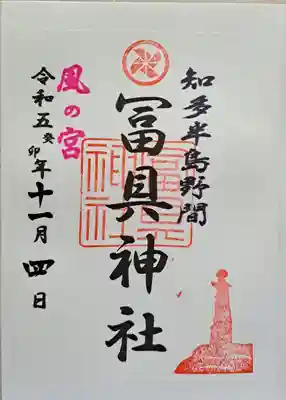 知多半島野間
冨具神社
冨具
神社
風の宮
令和五癸卯年十一月四日